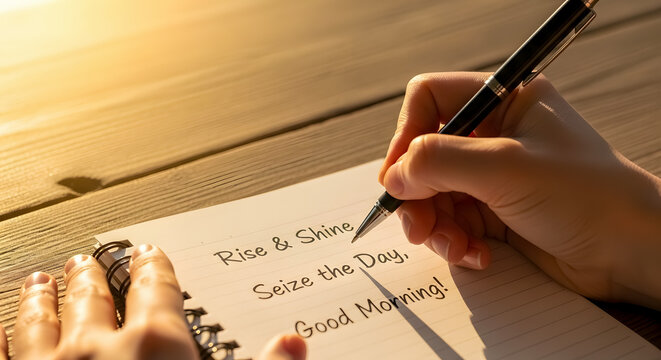 Rise & Shine
Seize the Day,
Good Morning!